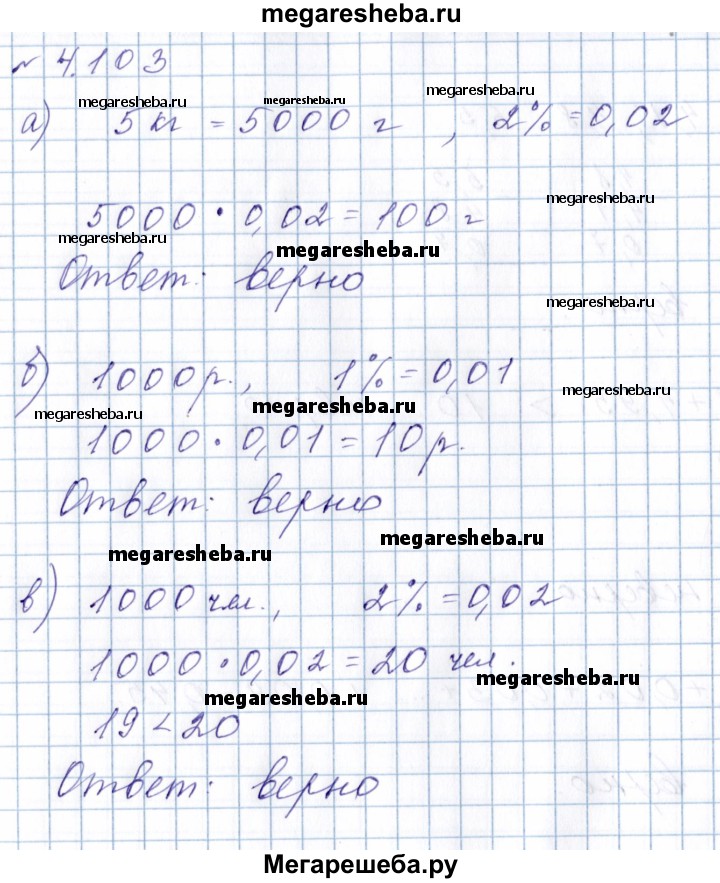 megaresheba.ru
№ 4.103
megaresheba.ru megaresheba.ru megaresheba.ru
а) 5 кг = 5000 г , 2% = 0,02
megaresheba.ru
5000 · 0,02 = 100 г
megaresheba.ru megaresheba.ru
Ответ: верно
megaresheba.ru
б) 1000 р., 1% = 0,01
megaresheba.ru megaresheba.ru megaresheba.ru
1000 · 0,01 = 10 р.
Ответ: верно
megaresheba.ru
megaresheba.ru
в) 1000 чел., 2% = 0,02
1000 · 0,02 = 20 чел.
megaresheba.ru
megaresheba.ru
19 < 20
Ответ: верно
Мегарешеба.ру